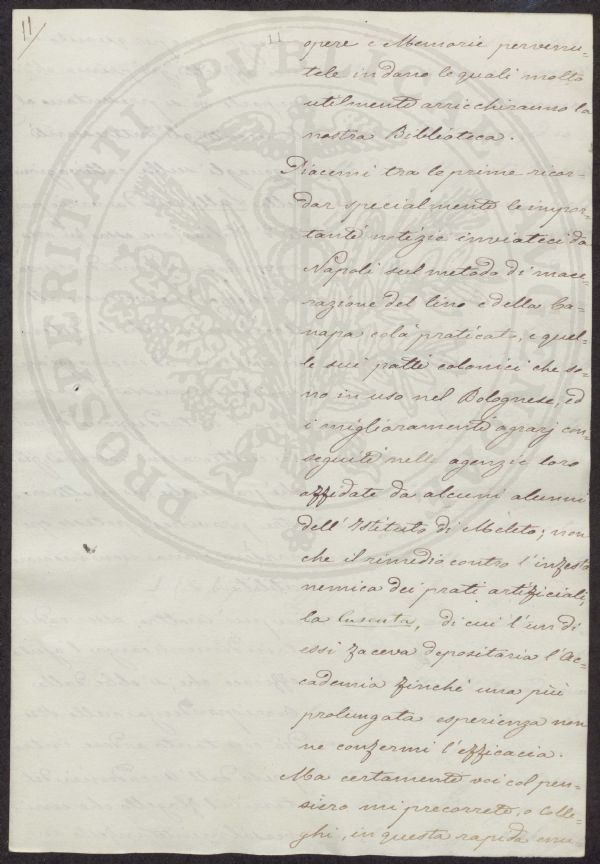 11
11
opere e Memorie pervenu=
tele in dono le quali molto
utilmente arricchiranno la
nostra Biblioteca.
Piacemi tra le prime ricor=
dar specialmente le impor=
tanti notizie inviateci da
Napoli sul metodo di mace=
razione del lino e della Ca=
napa colà praticato, e quel=
le sui patti colonici che so=
no in uso nel Bolognese, ed
i miglioramenti agrarj con=
seguiti nelle agenzie loro
affidate da alcuni alunni
dell'Istituto di Meleto; non
che il rimedio contro l'infesta
nemica dei prati artificiali,
la Cuscuta, di cui l'un di
essi faceva depositaria l'Ac=
cademia finchè una più
prolungata esperienza non
ne confermi l'efficacia.
Ma certamente voi col pen=
siero mi precorrete, o Colle=
ghi, in questa rapida enu=
PROSPERITATI PUBLICAE